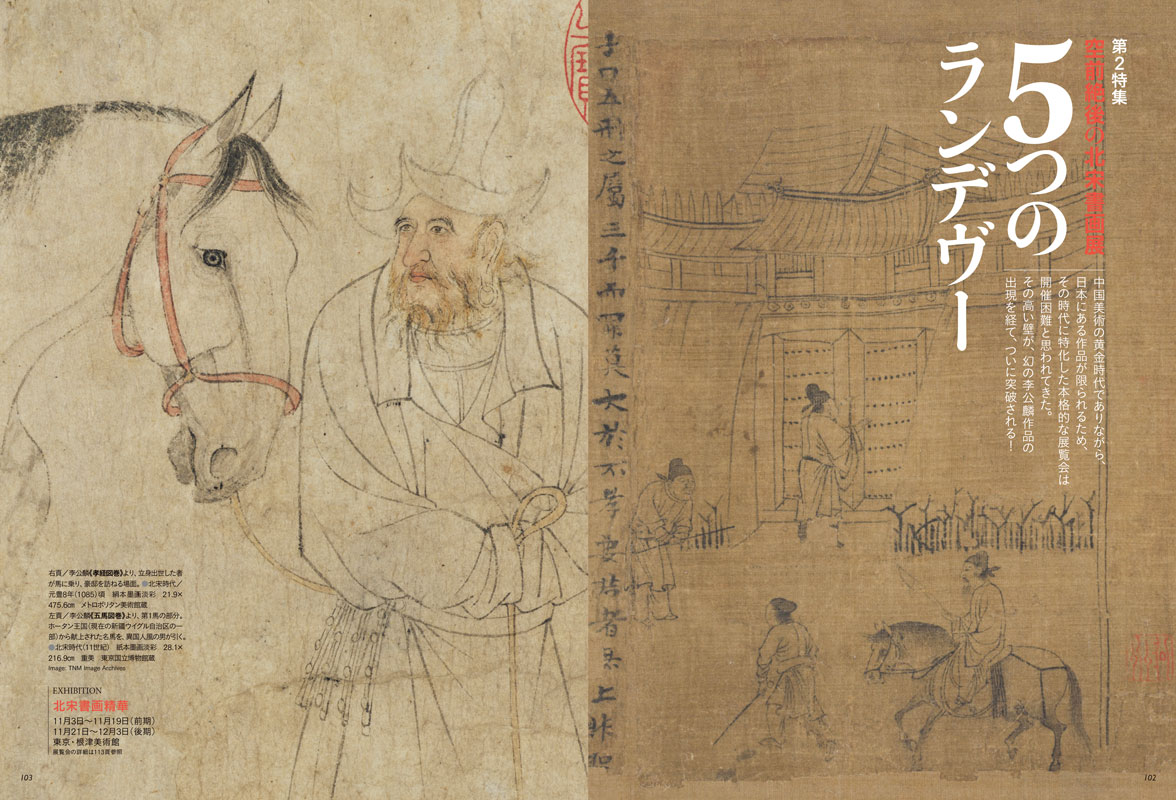 第2特集
空前絶後の北宋書画展
5つの
ランデヴー
中国美術の黄金時代でありながら、
日本にある作品が限られるため、
その時代に特化した本格的な展覧会は
開催困難と思われてきた。
その高い壁が、幻の李公麟作品の
出現を経て、ついに突破される！
子曰五刑之屬三千而罪莫大於不孝要君者無上非聖
102
右頁／李公麟《孝経図巻》より、立身出世した者
が馬に乗り、豪邸を訪ねる場面。●北宋時代／
元豊8年（1085）頃　絹本墨画淡彩　21.9×
475.6㎝　メトロポリタン美術館蔵
左頁／李公麟《五馬図巻》より、第1馬の部分。
ホータン王国（現在の新疆ウイグル自治区の一
部）から献上された名馬を、異国人風の男が引く。
●北宋時代（11世紀）　紙本墨画淡彩　28.1×
216.9㎝　重美　東京国立博物館蔵
Image: TNM Image Archives
EXHIBITION
北宋書画精華
11月3日〜11月19日（前期）
11月21日〜12月3日（後期）
東京・根津美術館
展覧会の詳細は113頁参照
103